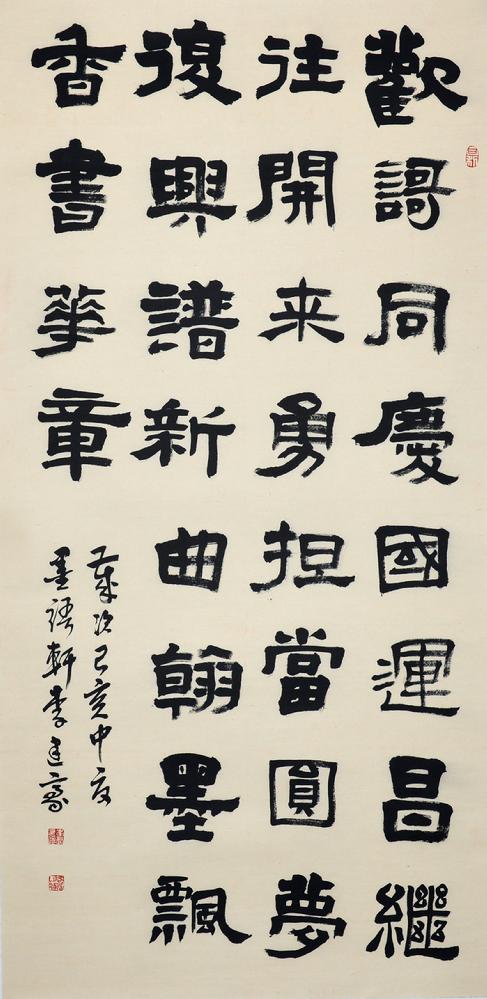 歡謌同慶國運昌繼
往開来勇担當圓夢
復興譜新曲翰墨飄
香書華章
歲次己亥中夜
墨語軒李建豪